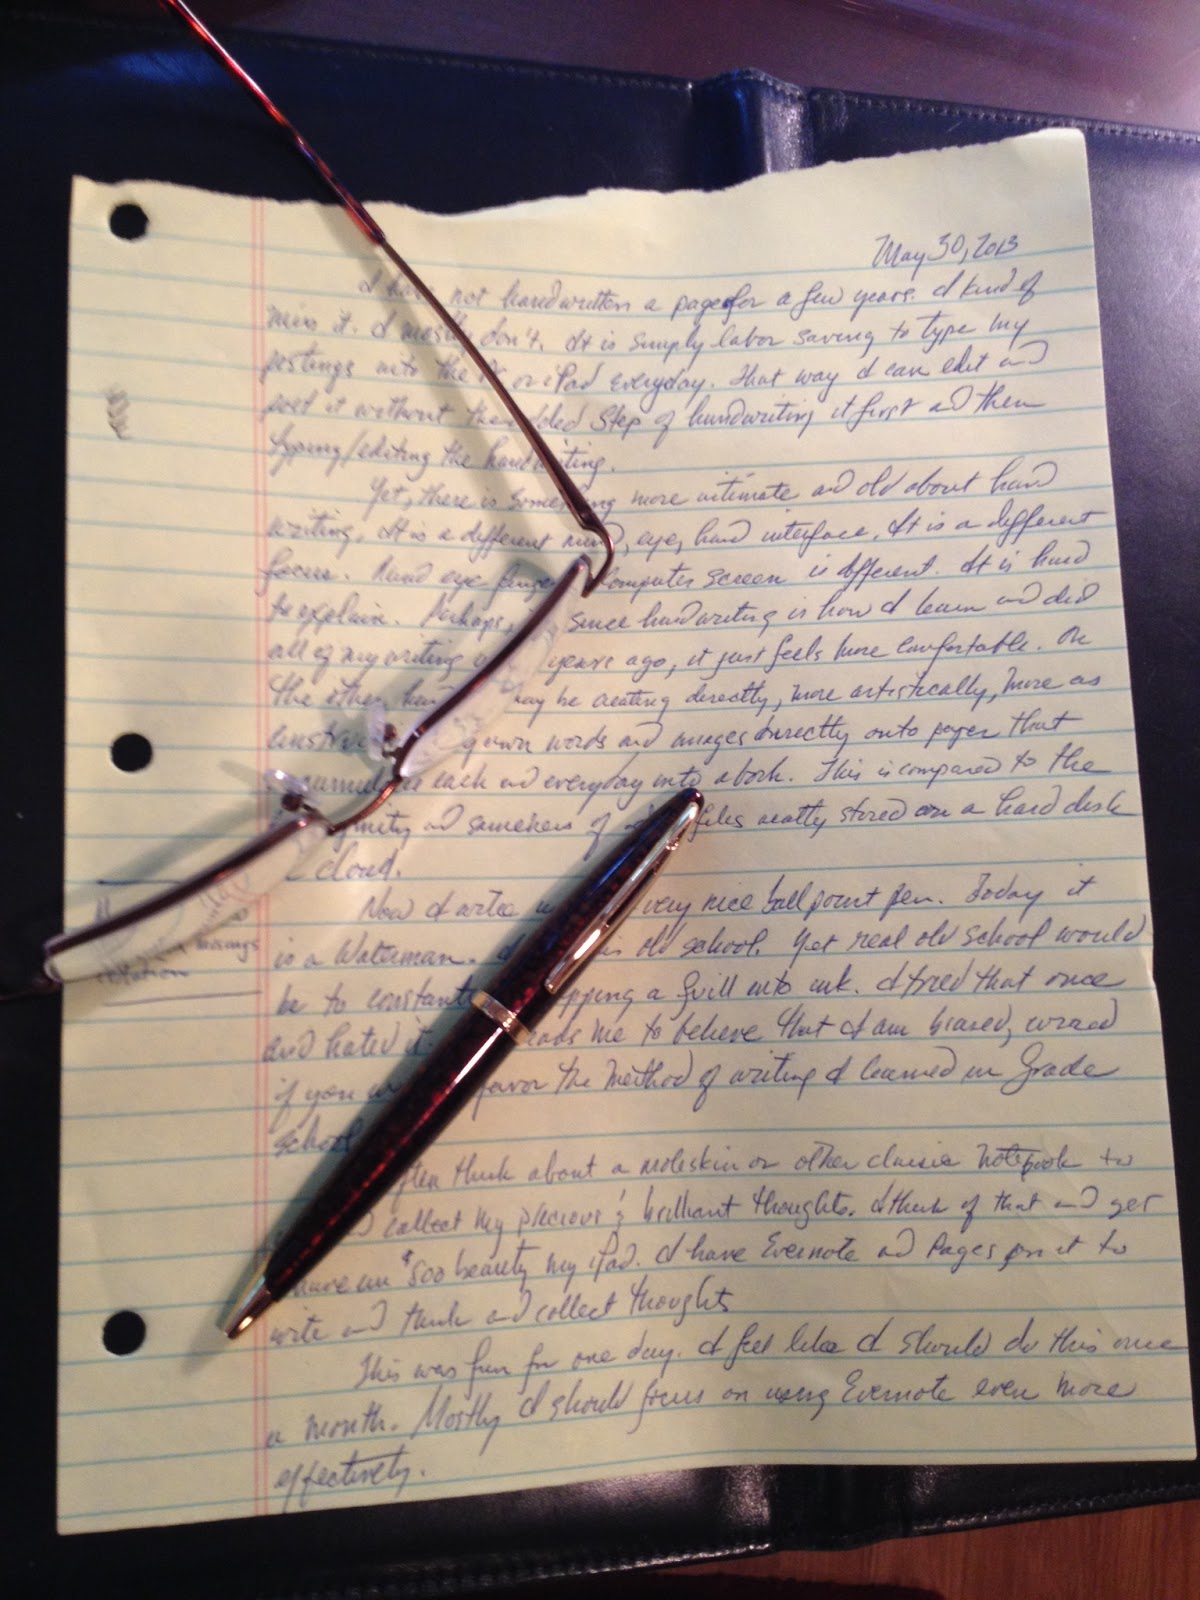 May 30, 2013
I have not handwritten a page for a few years. I kind of
miss it. I mostly don't. It is simply labor saving to type my
postings into the PC or iPad everyday. That way I can edit and
post it without the added step of handwriting it first and then
typing/editing the handwriting.
Yet, there is something more intimate and old about hand
writing. It is a different mind, eye, hand interface. It is a different
focus. Mind eye finger computer screen is different. It is hard
to explain. Perhaps, since handwriting is how I learn and did
all of my writing years ago, it just feels more comfortable. On
the other hand may be creating directly, more artistically, more as
own words and images directly onto paper that
each and everyday into a book. This is compared to the
and of files neatly stored on a hard disk
cloud.
Now I write very nice ball point pen. Today it
is a Waterman. is old school. Yet real old school would
be to constantly dipping a quill into ink. I tried that once
and hated it. leads me to believe that I am biased, wired
if you favor the method of writing I learned in Grade
school
often think about a moleskin or other classic notebook to
collect my precious & brilliant thoughts. I think of that and get
have an $500 beauty my iPad. I have Evernote and Pages on it to
write and think and collect thoughts
This was fun for one day. I feel like I should do this once
a month. Mostly I should focus on using Evernote even more
effectively.